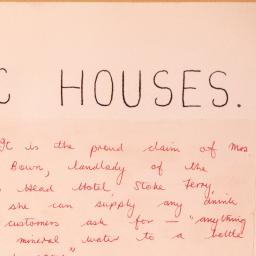 C HOUSES.
It is the proud claim of Mrs.
Bown, landlady of the
Head Hotel, Stoke Ferry,
she can supply any drink
customers ask for — "anything
mineral water to a bottle